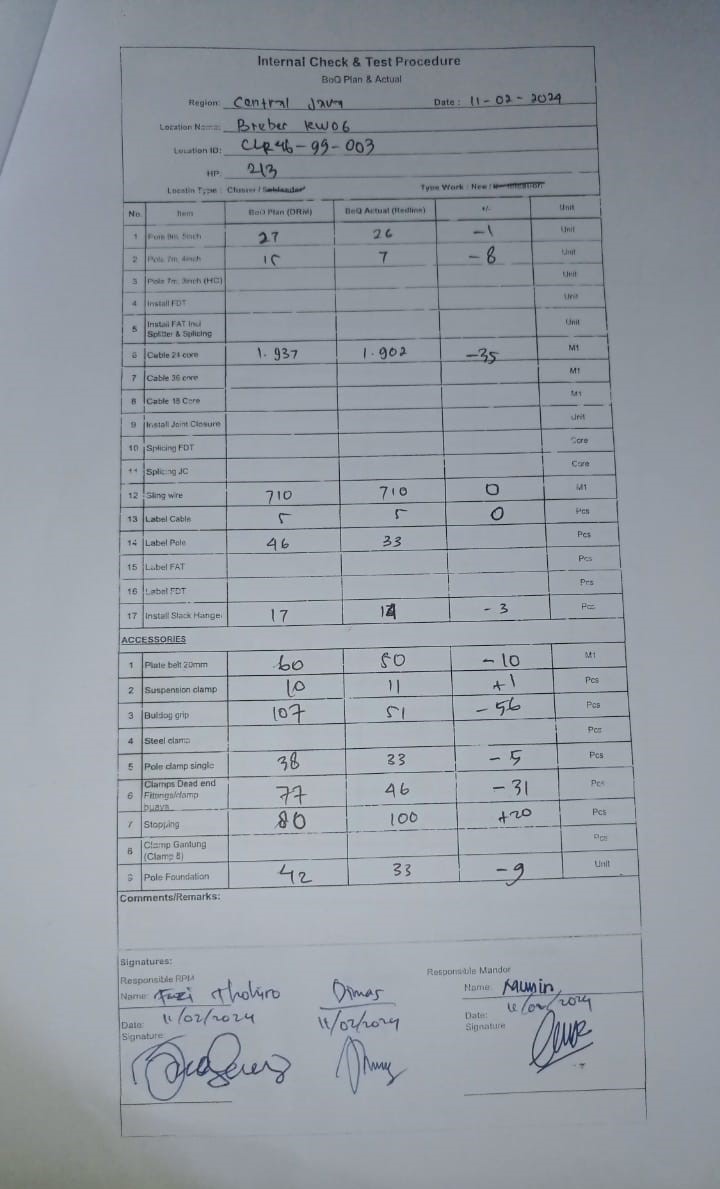 Internal Check & Test Procedure
BoQ Plan & Actual
Region: Central Java Date: 11-02-2024
Location Name: Breber RW06
Location ID: CLR46-99-003
HP: 213
Locatin Type: Cluster / Type Work: New /
No. Item BoQ Plan (DRM) BoQ Actual (Redline) +/- Unit
1 Pole 9m, 5inch 27 26 -1 Unit
2 Pole 7m, 4inch 15 7 -8 Unit
3 Pole 7m, 3inch (HC) Unit
4 Install FDT Unit
5 Install FAT Incl Splitter & Splicing Unit
6 Cable 24 core 1.937 1.902 -35 M1
7 Cable 36 core M1
8 Cable 18 Core M1
9 Install Joint Closure Unit
10 Splicing FDT Core
11 Splicing JC Core
12 Sling wire 710 710 0 M1
13 Label Cable 5 5 0 Pcs
14 Label Pole 46 33 Pcs
15 Label FAT Pcs
16 Label FDT Pcs
17 Install Slack Hanger 17 14 -3 Pcs
ACCESSORIES
1 Plate belt 20mm 60 50 -10 M1
2 Suspension clamp 10 11 +1 Pcs
3 Buldog grip 107 51 -56 Pcs
4 Steel clamp Pcs
5 Pole clamp single 38 33 -5 Pcs
6 Clamps Dead end Fittings/clamp buaya 77 46 -31 Pcs
7 Stopping 80 100 +20 Pcs
8 Clamp Gantung (Clamp 8) Pcs
9 Pole Foundation 42 33 -9 Unit
Comments/Remarks:
Signatures:
Responsible RPM Responsible Mandor
Name: Thohiro Dimas Name: Mumin
Date: 11/02/2024 11/02/2024 Date: 11/02/2024
Signature Signature